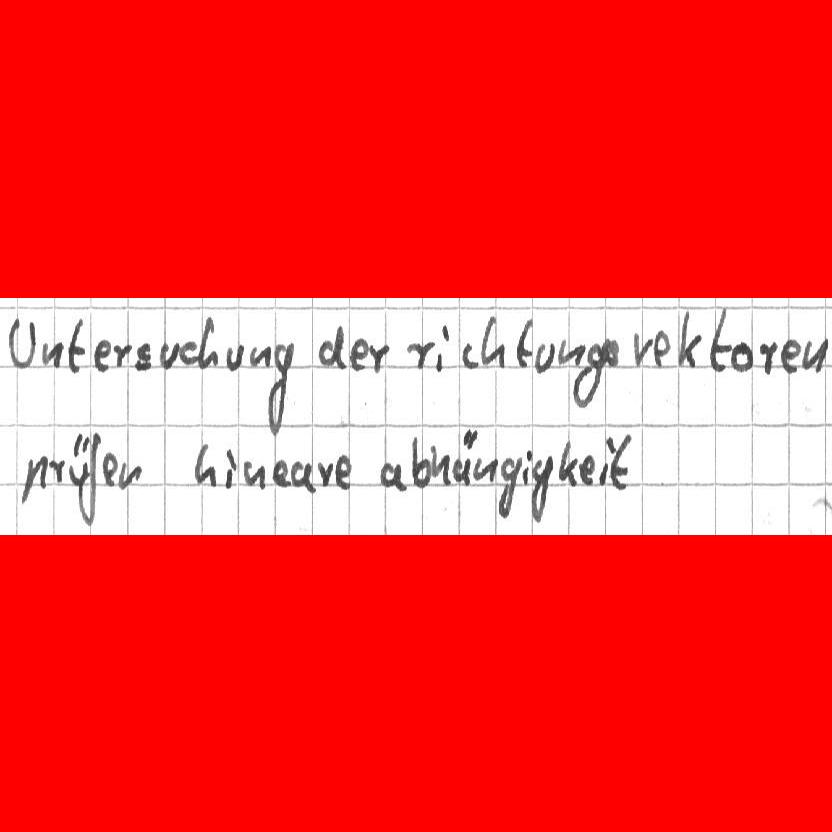 Untersuchung der richtungsvektoren
prüfen lineare abhängigkeit